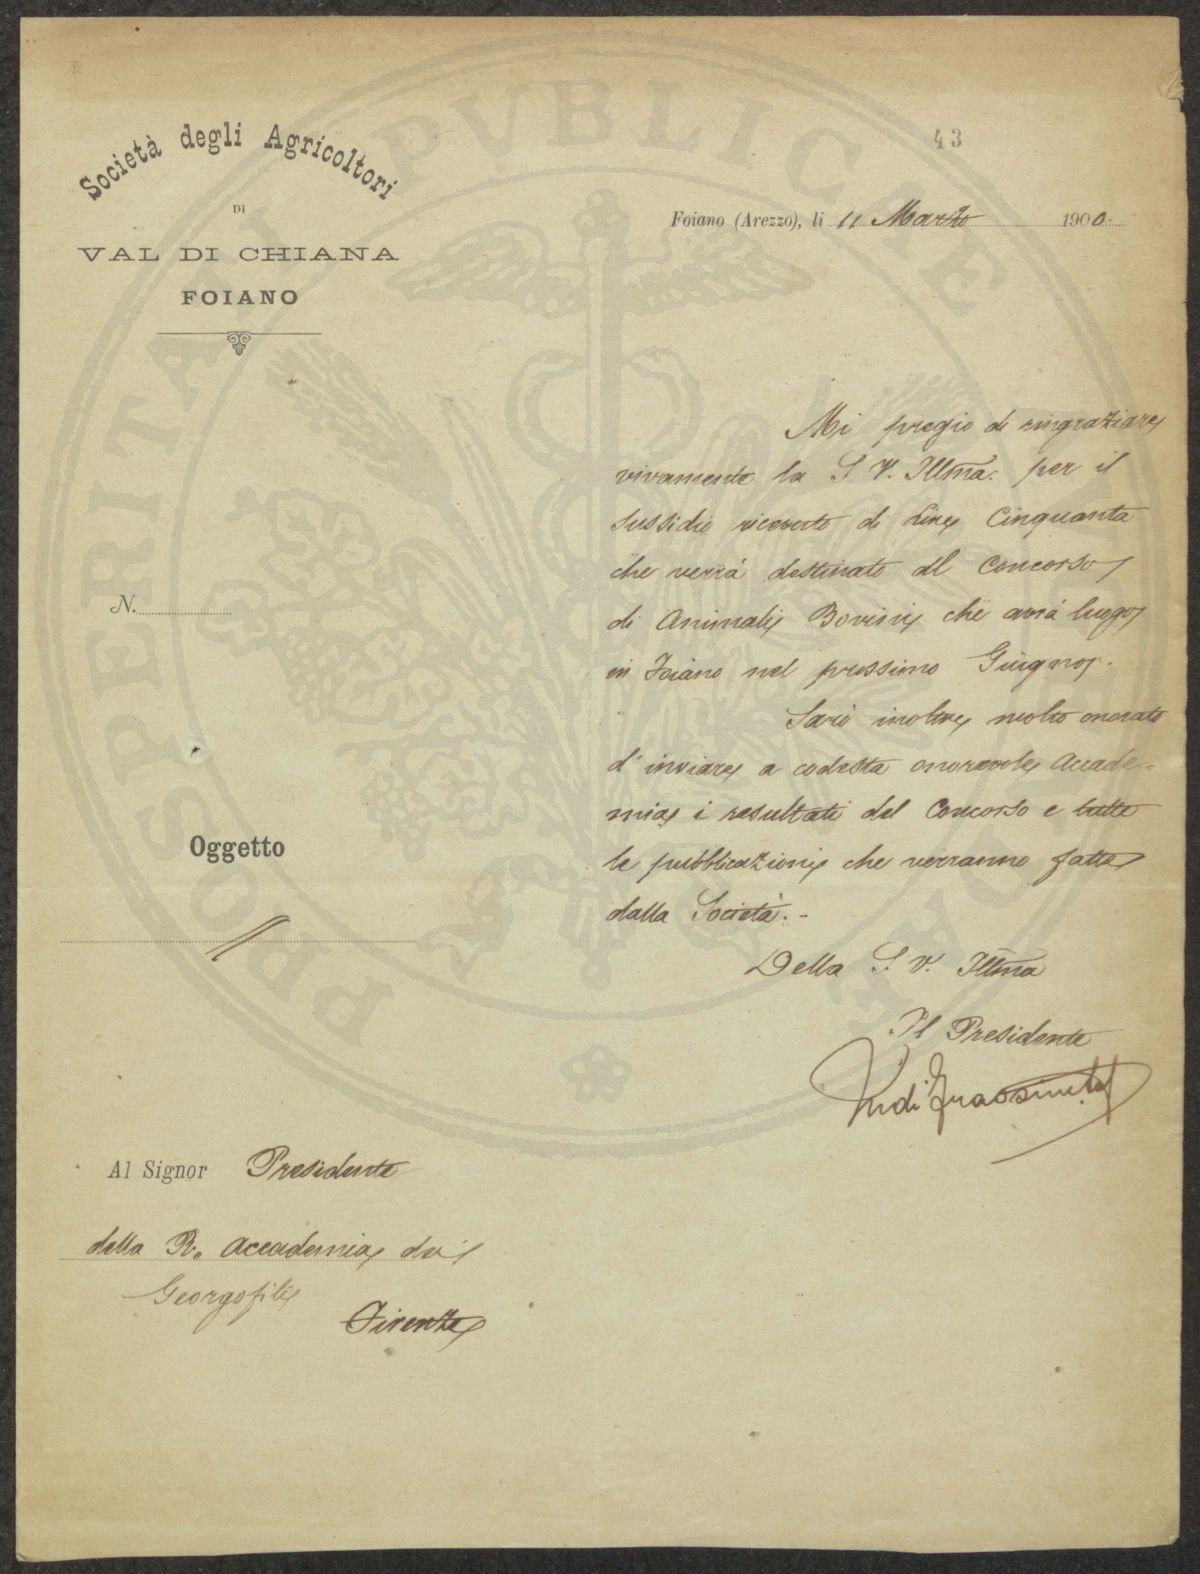 43
Società degli Agricoltori
DI
VAL DI CHIANA
FOIANO
Foiano (Arezzo), li 11 Marzo 1900.
Mi pregio di ringraziare
vivamente la S. V. Illma. per il
sussidio ricevuto di Lire Cinquanta
che verrà destinato al Concorso
di Animali Bovini che avrà luogo
in Foiano nel prossimo Giugno.
Sarò inoltre molto onorato
d'inviare a codesta onorevole Accade-
mia i resultati del Concorso e tutte
le pubblicazioni che verranno fatte
dalla Società. -
Della S. V. Illma
Il Presidente
N.
Oggetto
Al Signor Presidente
della R. Accademia dei
Georgofili
Firenze
PROSPERITATI PVBLICAE